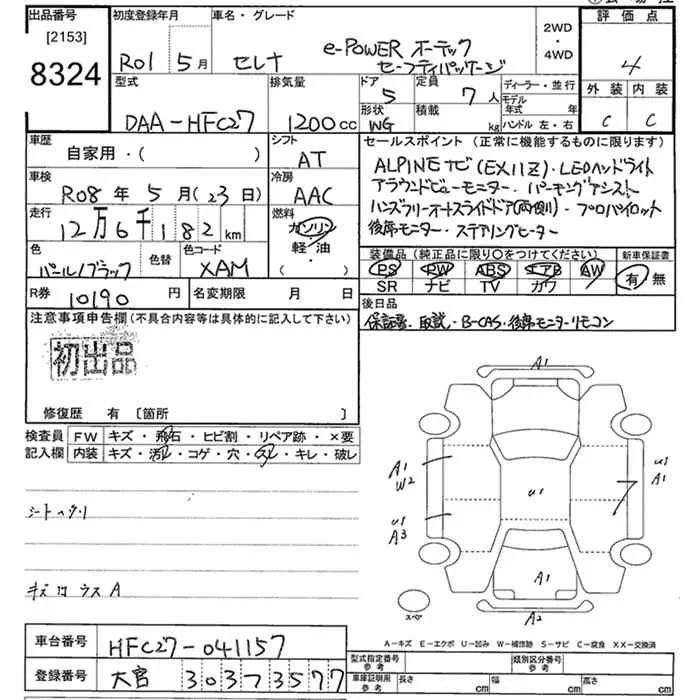 出品番号
[2153]
8324
初度登録年月 車名・グレード
R01 5月 セレナ e-POWER オーテック セーフティパッケージ
2WD・4WD
評価点
4
外装 内装
C C
型式 排気量
DAA-HFC27 1200cc
ドア 定員
5 7人
形状 積載
WG kg
ディーラー・並行
モデル年式 年
ハンドル 左・右
車歴 シフト
自家用・( ) AT
車検 冷房
R08年 5月(23日) AAC
走行 燃料
12万6千182km ガソリン 軽・油・( )
色 色替 色コード
パール/ブラック XAM
R券 10190円 名変期限 月 日
セールスポイント(正常に機能するものに限ります)
ALPINEナビ(EX11Z)・LEDヘッドライト
アラウンドビューモニター・パーキングアシスト
ハンズフリーオートスライドドア(両側)・プロパイロット
後席モニター・ステアリングヒーター
装備品(純正品に限り○をつけてください)
PS PW ABS エアB AW
SR ナビ TV カワ
新車保証書
有 無
後日品
保証書・取説・B-CAS・後席モニターリモコン
注意事項申告欄(不具合内容等は具体的に記入して下さい)
初出品
修復歴 有 [箇所 ]
検査員記入欄
FW キズ・飛石・ヒビ割・リペア跡・×要
内装 キズ・汚れ・コゲ・穴・スレ・キレ・破レ
シートヘタリ
キズ凹ウスA
A1
A1
W2
U1
A3
U1
U1
A1
A1
A2
スペア
A-キズ E-エクボ U-凹み W-補修跡 S-サビ C-腐食 XX-交換済
車台番号 HFC27-041157
登録番号 大宮 303 ろ 3577
型式指定番号 参考 類別区分番号 参考
車庫証明用 参考 長さ cm 幅 cm 高さ cm